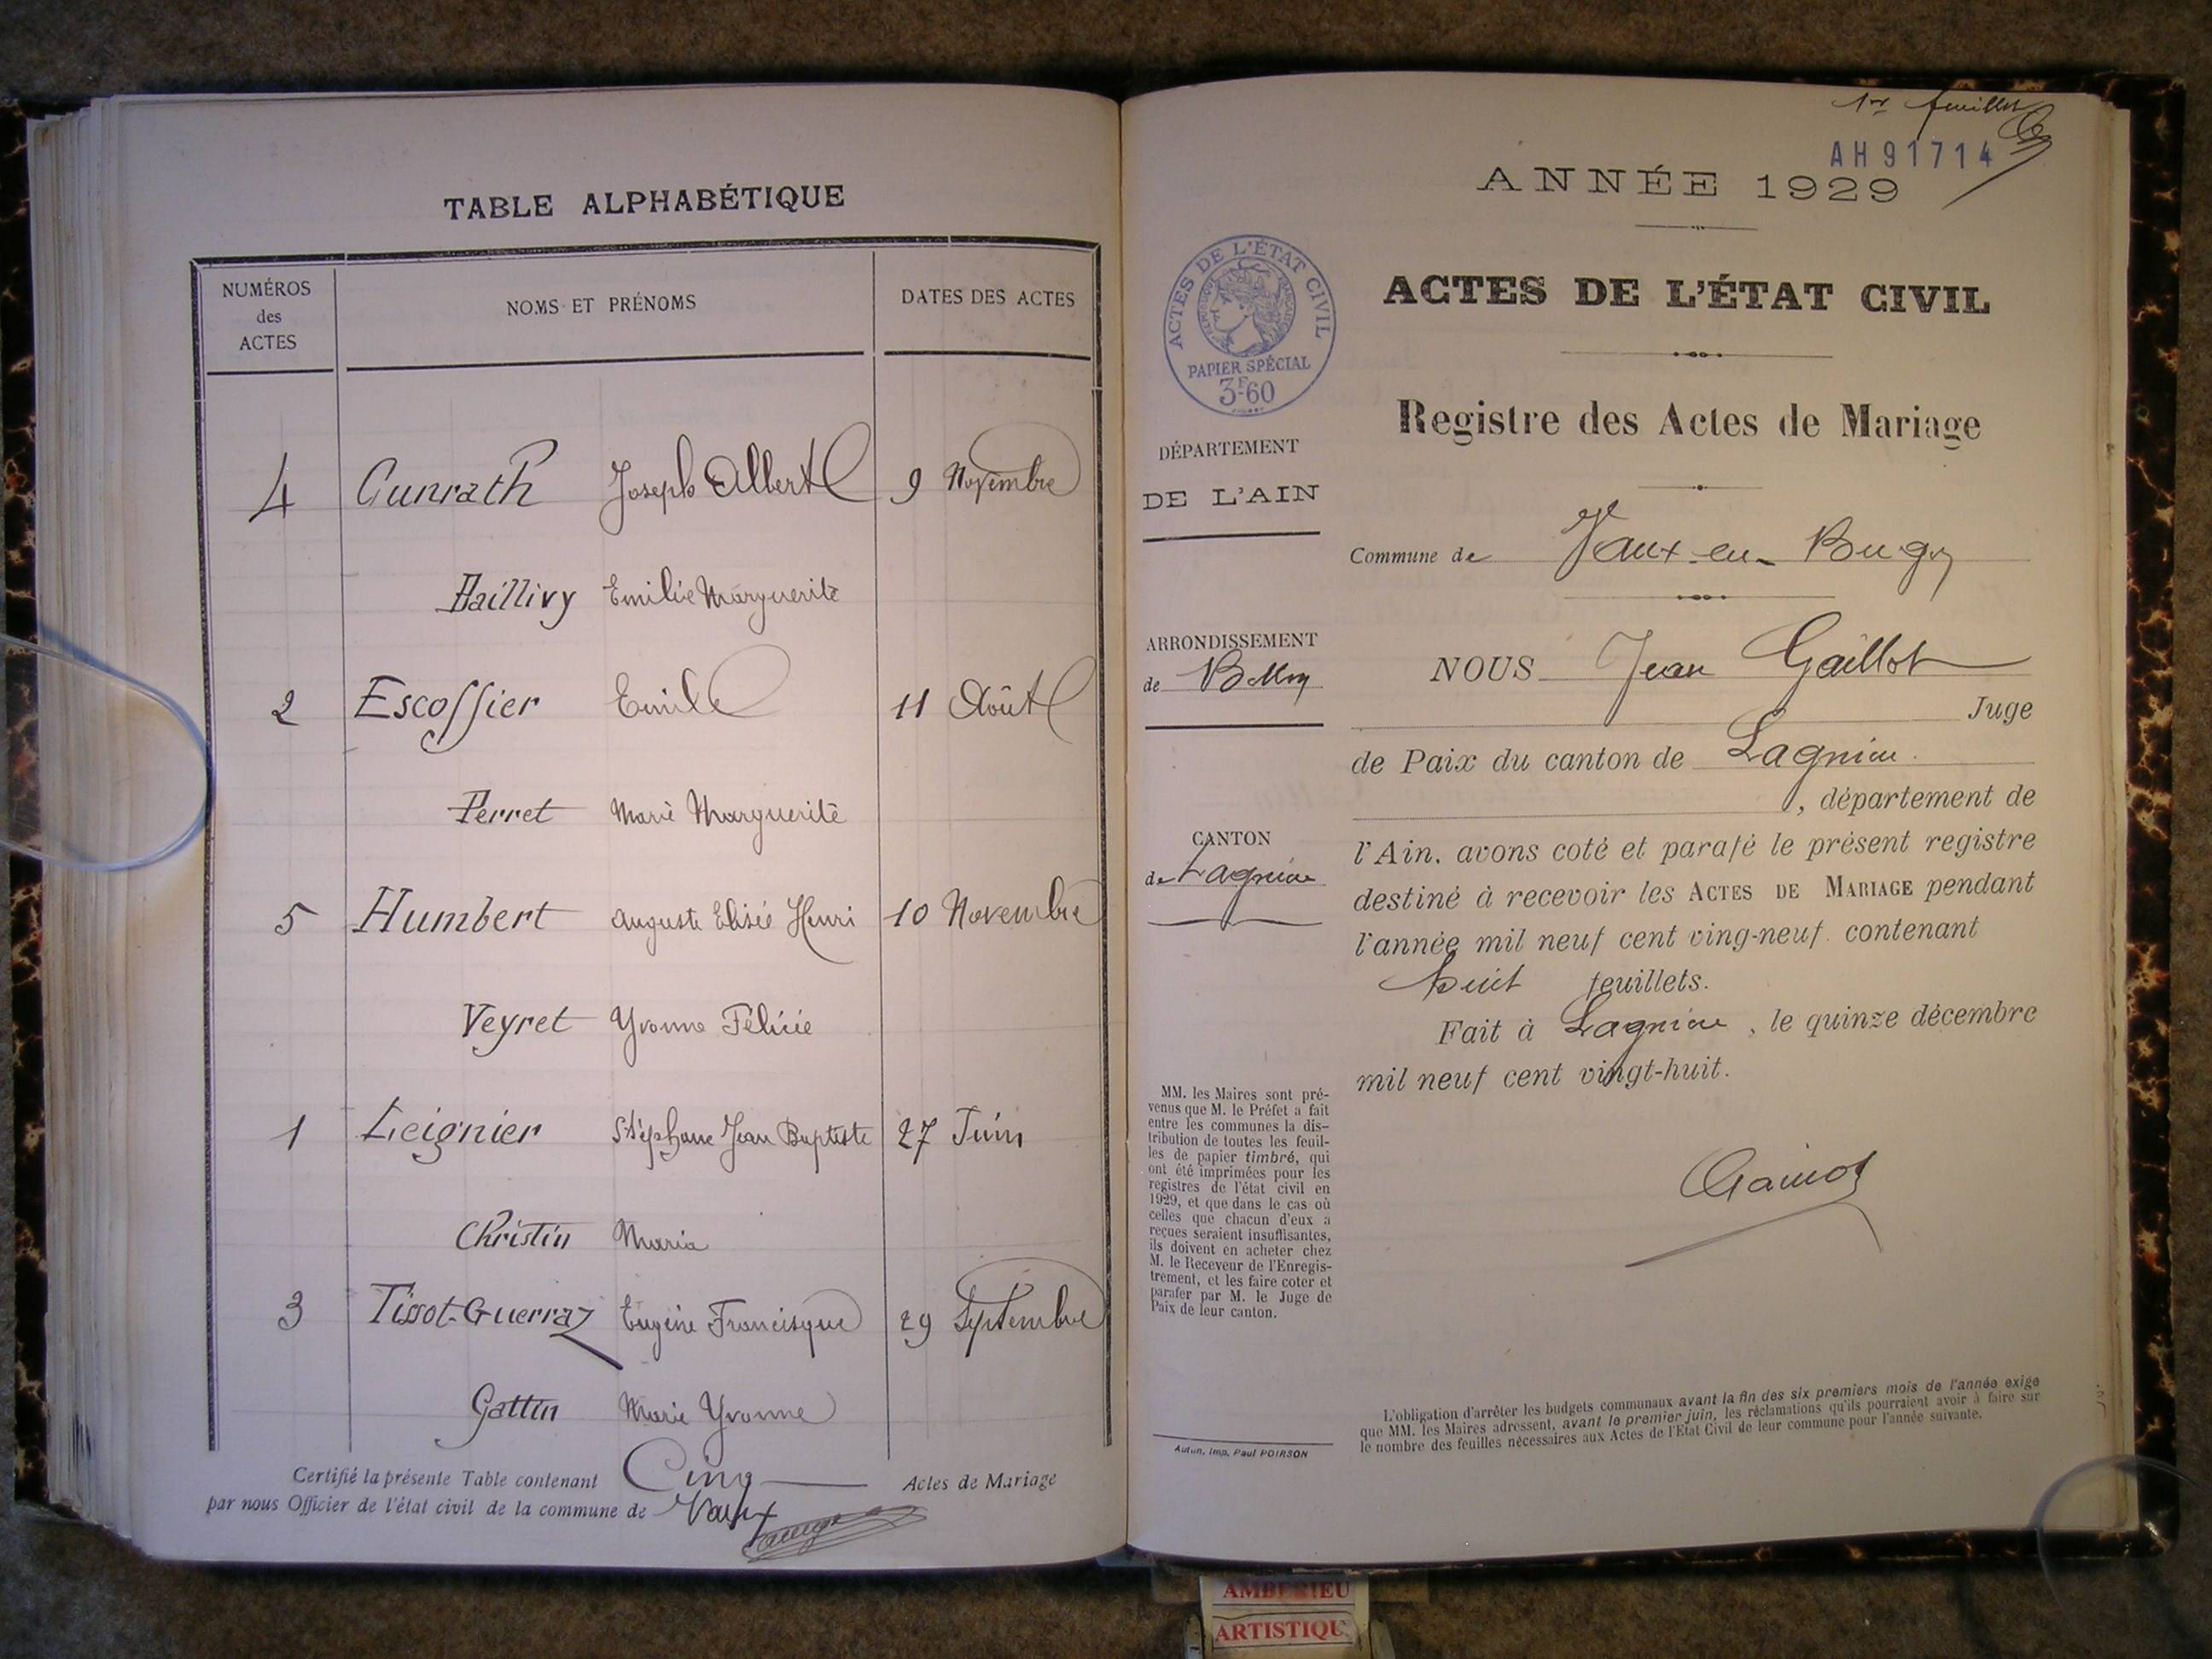 TABLE ALPHABÉTIQUE
NUMÉROS
des
ACTES
NOMS ET PRÉNOMS
DATES DES ACTES
4 Cunrath Joseph Albert 9 Novembre
Baillivy Emilie Marguerite
2 Escoffier Emile 11 Août
Perret Marie Marguerite
5 Humbert Auguste Elisée Henri 10 Novembre
Veyret Yvonne Félicie
1 Leignier Stéphane Jean Baptiste 27 Juin
Christin Maria
3 Tissot-Guerraz Eugène Francisque 29 Septembre
Gattin Marie Yvonne
Certifié la présente Table contenant Cinq Actes de Mariage
par nous Officier de l'état civil de la commune de Vaux
1er feuillet
AH91714
ANNÉE 1929
ACTES DE L'ÉTAT CIVIL
PAPIER SPÉCIAL
3F60
ACTES DE L'ÉTAT CIVIL
Registre des Actes de Mariage
DÉPARTEMENT
DE L'AIN
Commune de Vaux-en-Bugey
ARRONDISSEMENT
de Belley
CANTON
de Lagnieu
NOUS Jean Gaillot
Juge
de Paix du canton de Lagnieu
, département de
l'Ain, avons coté et parafé le présent registre
destiné à recevoir les ACTES DE MARIAGE pendant
l'année mil neuf cent ving-neuf contenant
huit feuillets.
Fait à Lagnieu, le quinze décembre
mil neuf cent vingt-huit.
MM. les Maires sont pré-
venus que M. le Préfet a fait
entre les communes la dis-
tribution de toutes les feuil-
les de papier timbré, qui
ont été imprimées pour les
registres de l'état civil en
1929, et que dans le cas où
celles que chacun d'eux a
reçues seraient insuffisantes,
ils doivent en acheter chez
M. le Receveur de l'Enregis-
trement, et les faire coter et
parafer par M. le Juge de
Paix de leur canton.
Autun, Imp. Paul POIRSON
L'obligation d'arrêter les budgets communaux avant la fin des six premiers mois de l'année exige
que MM. les Maires adressent, avant le premier juin, les réclamations qu'ils pourraient avoir à faire sur
le nombre des feuilles nécessaires aux Actes de l'État Civil de leur commune pour l'année suivante.
AMBERIEU
ARTISTIQU